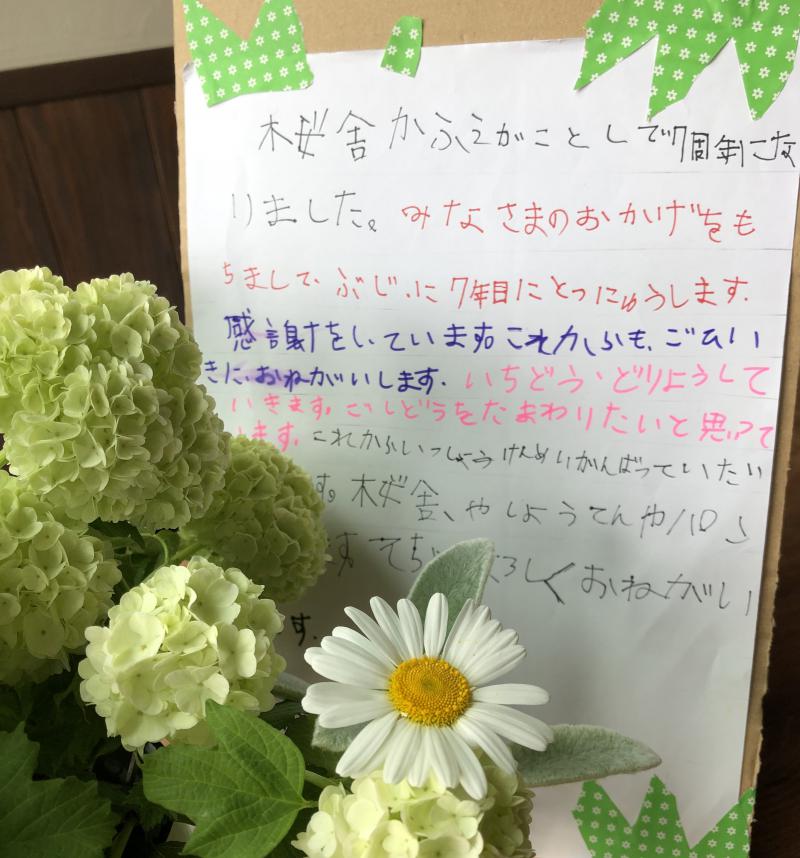 木桜舎かふぇがことしで7周年にな
りました。みなさまのおかげをも
ちまして、ぶじ、に7年目にとつにゅうします。
感謝をしています。これからも、ごひい
きに、おねがいします。いちどう、どりょうして
いきます。ごしどうをたまわりたいと思って
ます。これからいっしょうけんめいがんばっていたい
す。木桜舎、やしょうてんや
すてち ろしくおねがい
す.